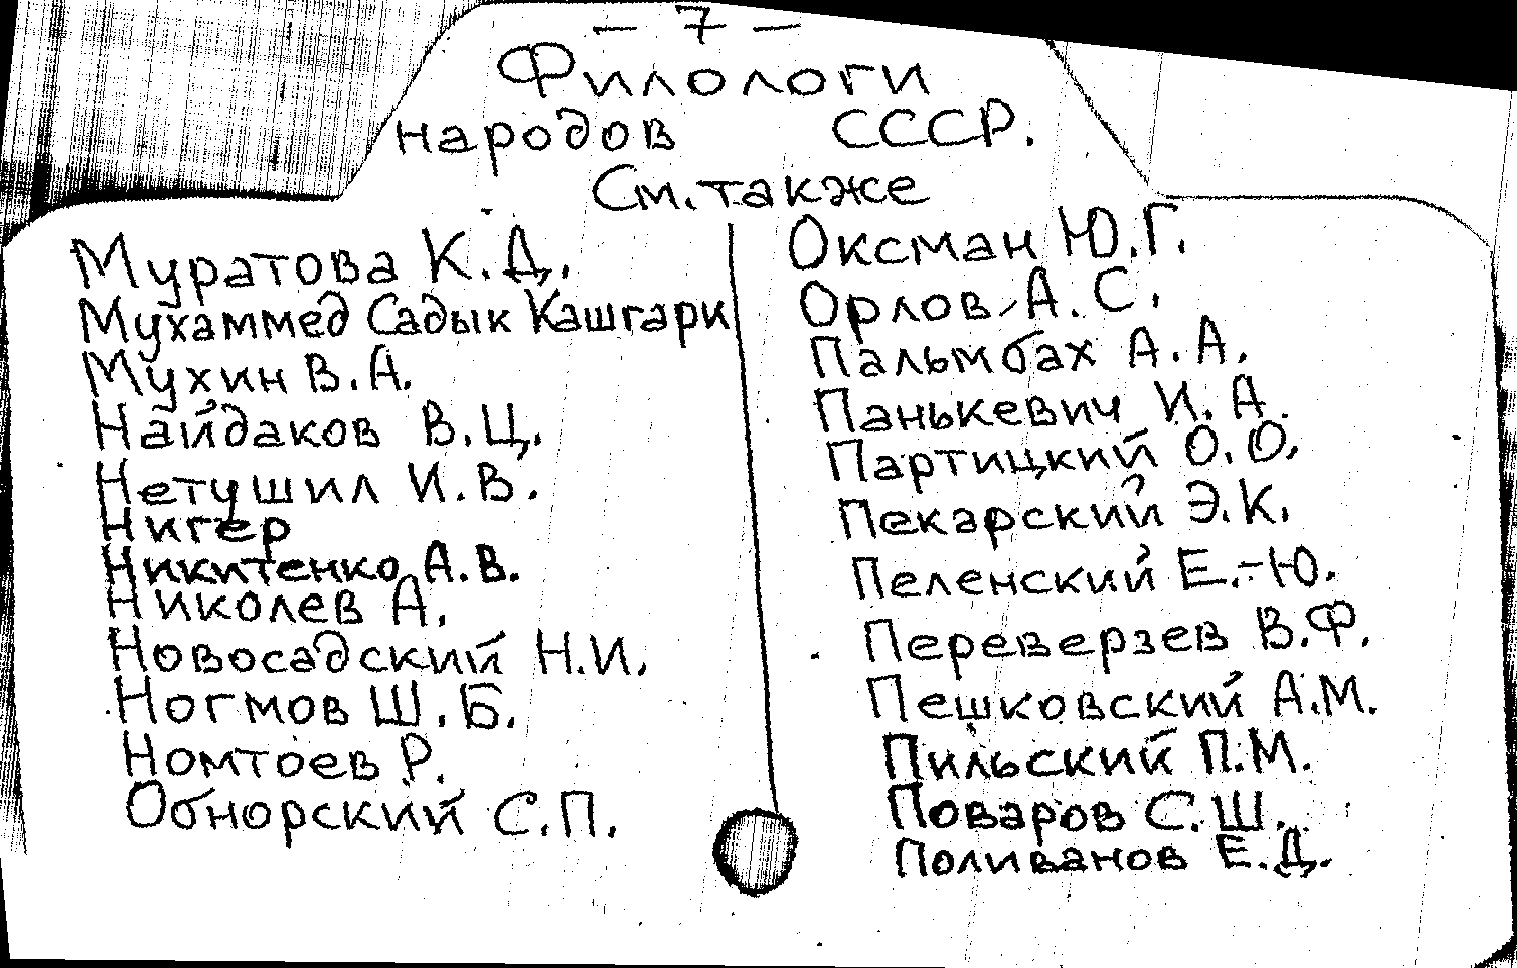 — 7 —
Филологи
народов СССР.
См. также
Муратова К.Д.
Мухаммед Садык Кашгари
Мухин В.А.
Найдаков В.Ц.
Нетушил И.В.
Нигер
Никитенко А.В.
Николев А.
Новосадский Н.И.
Ногмов Ш.Б.
Номтоев Р.
Обнорский С.П.
Оксман Ю.Г.
Орлов А.С.
Пальмбах А.А.
Панькевич И.А.
Партицкий О.О.
Пекарский Э.К.
Пеленский Е.-Ю.
Переверзев В.Ф.
Пешковский А.М.
Пильский П.М.
Поваров С.Ш.
Поливанов Е.Д.